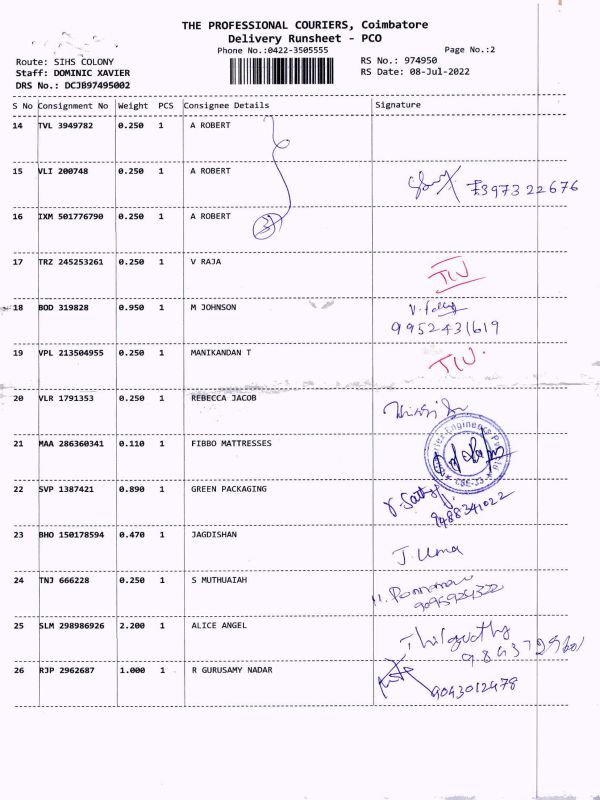 THE PROFESSIONAL COURIERS, Coimbatore
Delivery Runsheet - PCO
Phone No.:0422-3505555
Page No.:2
Route: SIHS COLONY
RS No.: 974950
Staff: DOMINIC XAVIER
RS Date: 08-Jul-2022
DRS No.: DCJB97495002
S No Consignment No Weight PCS Consignee Details Signature
14 TVL 3949782 0.250 1 A ROBERT
15 VLI 200748 0.250 1 A ROBERT
16 IXM 501776790 0.250 1 A ROBERT
3
17 TRZ 245253261 0.250 1 V RAJA
18 BOD 319828 0.950 1 M JOHNSON
9952431619
19 VPL 213504955 0.250 1 MANIKANDAN T
20 VLR 1791353 0.250 1 REBECCA JACOB
21 MAA 286360341 0.110 1 FIBBO MATTRESSES
22 SVP 1387421 0.890 1 GREEN PACKAGING
9488341022
23 BHO 150178594 0.470 1 JAGDISHAN
J. Uma
24 TNJ 666228 0.250 1 S MUTHUAIAH
25 SLM 298986926 2.200 1 ALICE ANGEL
26 RJP 2962687 1.000 1 R GURUSAMY NADAR
9043012478